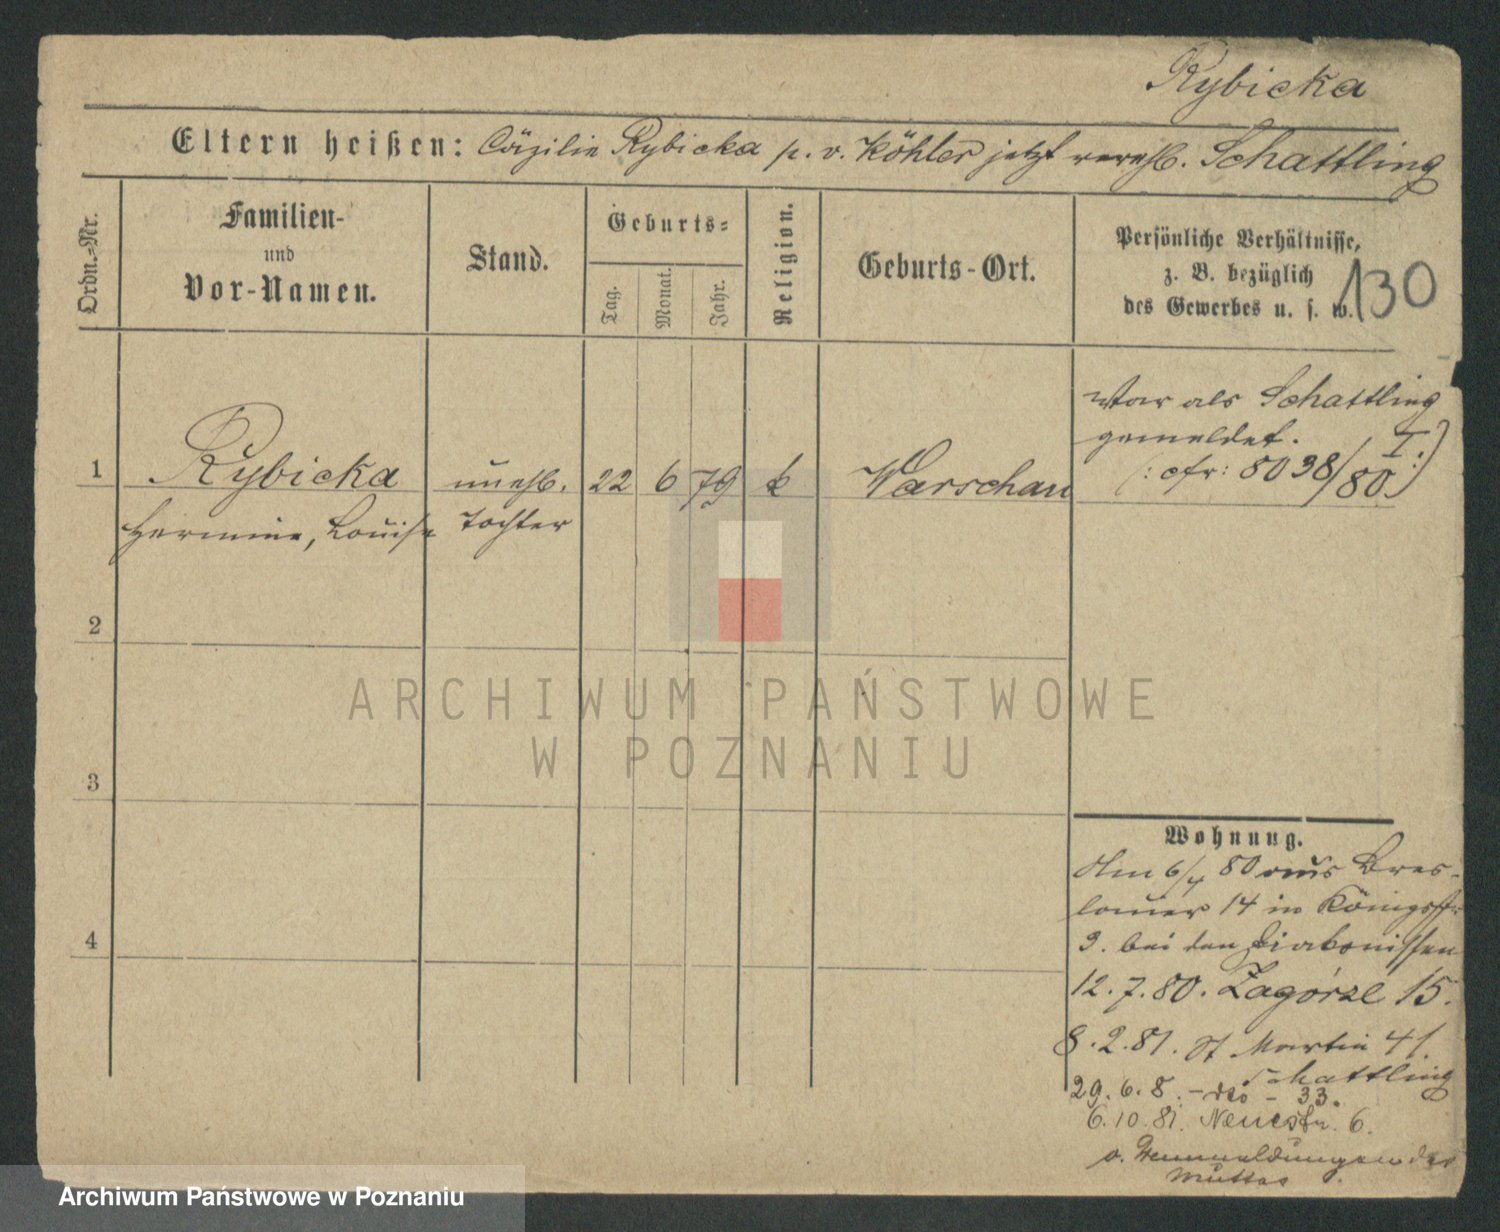 Rybicka
Eltern heißen: Cäzilie Rybicka p. v. Köhler jetzt verehl. Schattling
Ordn.-Nr.
Familien-
und
Vor-Namen.
Stand.
Geburts-
Tag.
Monat.
Jahr.
Religion.
Geburts-Ort.
Persönliche Verhältnisse,
z. B. bezüglich
des Gewerbes u. s. w.
130
1
Rybicka
Hermine, Louise
unehl.
Tochter
22 6 79 k
Warschau
War als Schattling
gemeldet.
(: cfr: 8038/80 I:)
2
3
4
Wohnung.
Am 6/4 80 aus Bres-
lauer 14 in Königsstr
3. bei den Diakonissen
12.7.80. Zagórze 15.
8.2.81. St Martin 41.
Schattling
29.6.8. - dto - 33.
6.10.81. Neuestr. 6.
der
Mutter
ARCHIWUM PAŃSTWOWE
W POZNANIU
Archiwum Państwowe w Poznaniu